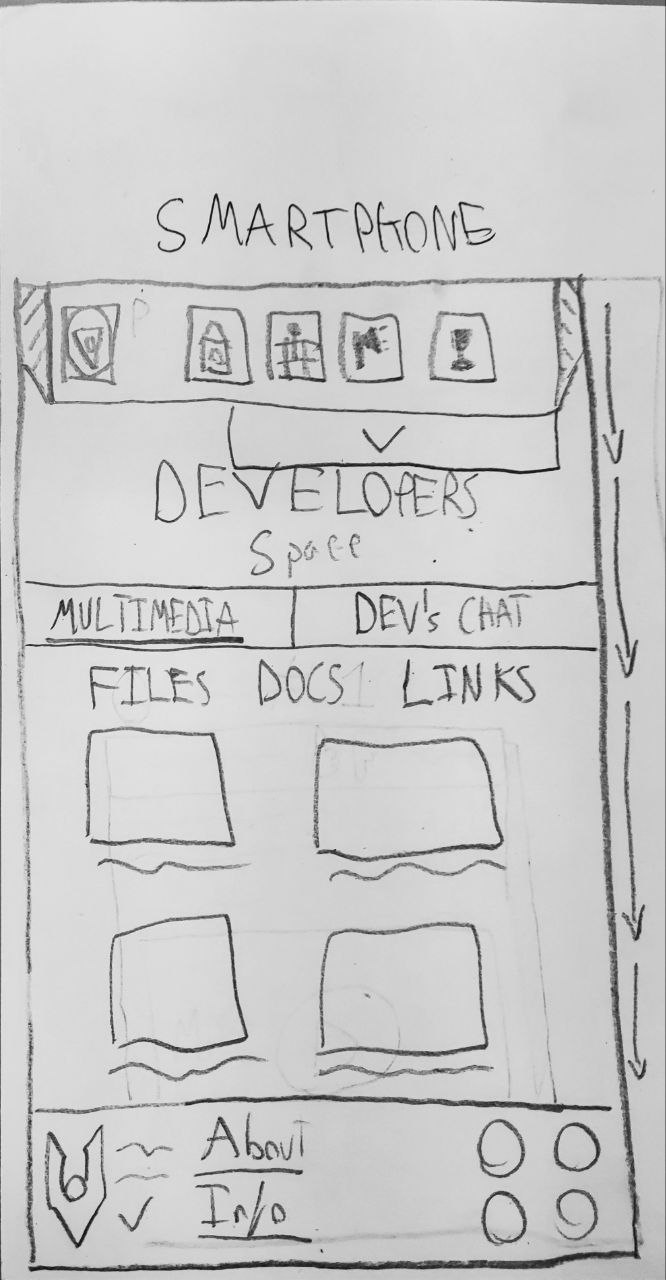 SMARTPHONE
P
DEVELOPERS
Space
MULTIMEDIA DEV's CHAT
FILES DOCS LINKS
About
Info